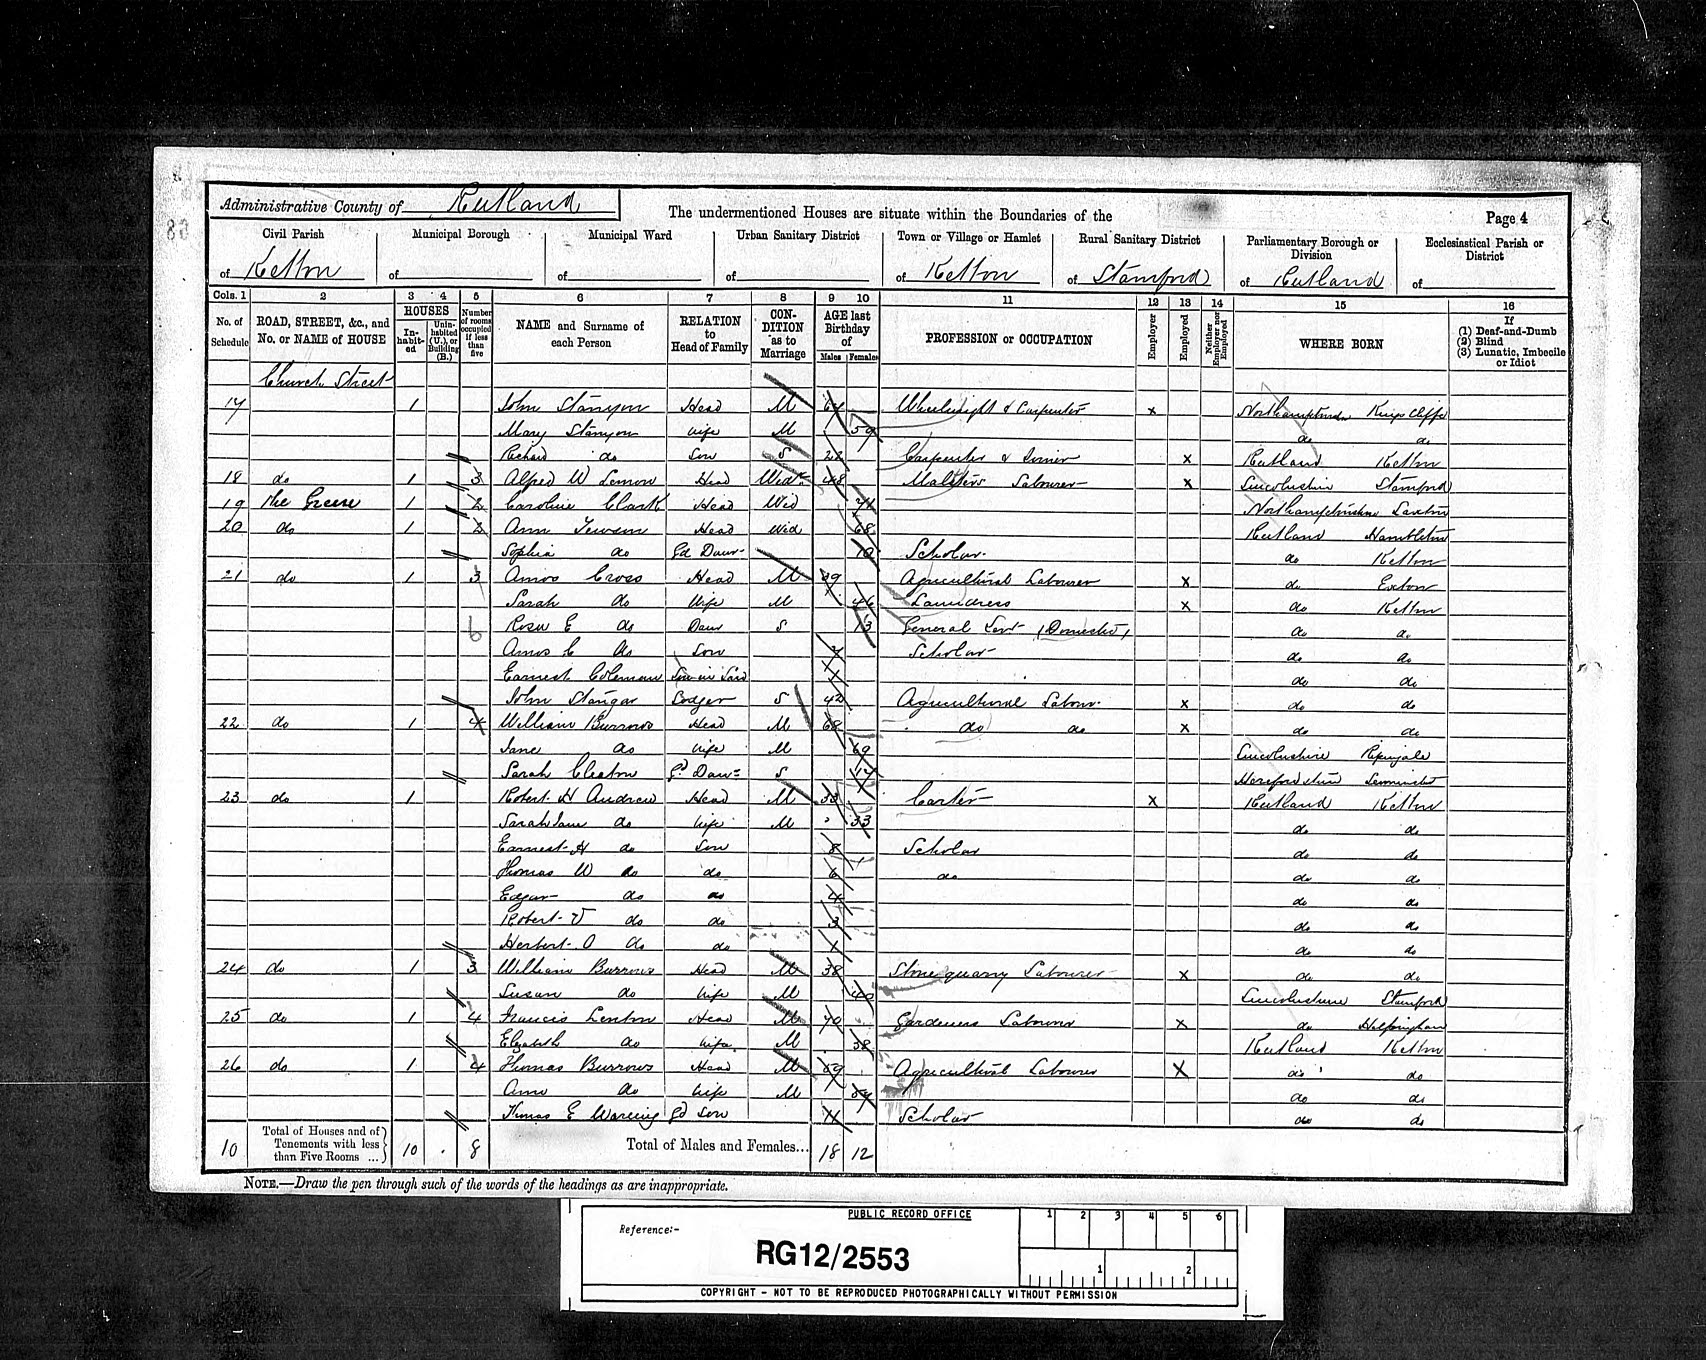 Administrative County of Rutland
The undermentioned Houses are situate within the Boundaries of the
Page 4
Civil Parish
of Ketton
Municipal Borough
of
Municipal Ward
of
Urban Sanitary District
of
Town or Village or Hamlet
of Ketton
Rural Sanitary District
of Stamford
Parliamentary Borough or Division
of Rutland
Ecclesiastical Parish or District
of
Cols. 1 2 3 4 5 6 7 8 9 10 11 12 13 14 15 16
No. of Schedule
ROAD, STREET, &c., and No. or NAME of HOUSE
HOUSES
In-habit-ed
Unin-habited (U.), or Building (B.)
Number of rooms occupied if less than five
NAME and Surname of each Person
RELATION to Head of Family
CON-DITION as to Marriage
AGE last Birthday of
Males Females
PROFESSION or OCCUPATION
Employer
Employed
Neither Employer nor Employed
WHERE BORN
If
(1) Deaf-and-Dumb
(2) Blind
(3) Lunatic, Imbecile or Idiot
Church Street
17 1 John Stanyon Head M 64 Wheelwright & Carpenter x Northampton Kings Cliffe
Mary Stanyon Wife M 59 do do
Richard do Son S 22 Carpenter & Joiner x Rutland Ketton
18 do 1 3 Alfred W Lemon Head Widr 48 Malsters Labourer x Lincolnshire Stamford
19 The Green 1 2 Caroline Clark Head Wid 74 Northamptonshire Laxton
20 do 1 2 Ann Head Wid 68 Rutland Hambleton
Sophia do Gd Daur 10 Scholar do Ketton
21 do 1 3 Amos Cross Head M 39 Agricultural Labourer x do Exton
Sarah do Wife M 46 Laundress x do Ketton
6 Rose E do Daur S 13 General Sert (Domestic) do do
Amos C do Son 7 Scholar do do
Earnest Coleman Son in Law 1 do do
John Stangar Lodger S 42 Agricultural Labour x do do
22 do 1 4 William Burrows Head M 68 do do x do do
Jane do Wife M 69 Lincolnshire Ripingale
Sarah Gd Daur S 14 Herefordshire
23 do 1 Robert H Andrew Head M 33 Carter x Rutland Ketton
Sarah Jane do Wife M 33 do do
Earnest H do Son 8 Scholar do do
Thomas W do do 6 do do do
Edgar do do 4 do do
Robert V do do 3 do do
Herbert O do do 1 do do
24 do 1 3 William Burrows Head M 38 Stone quarry Labourer x do do
Susan do Wife M 40 Lincolnshire Stamford
25 do 1 4 Francis Lenton Head M 40 Gardeners Labourer x do Helpringham
Elizabeth do Wife M 38 Rutland Ketton
26 do 1 4 Thomas Burrows Head M 59 Agricultural Labourer x do do
Ann do Wife M 54 do do
Thomas E Gd Son 11 Scholar do do
10 Total of Houses and of Tenements with less than Five Rooms ... 10 8 Total of Males and Females... 18 12
NOTE.—Draw the pen through such of the words of the headings as are inappropriate.
PUBLIC RECORD OFFICE
Reference:-
RG12/2553
1 2 3 4 5 6
1 2
COPYRIGHT - NOT TO BE REPRODUCED PHOTOGRAPHICALLY WITHOUT PERMISSION